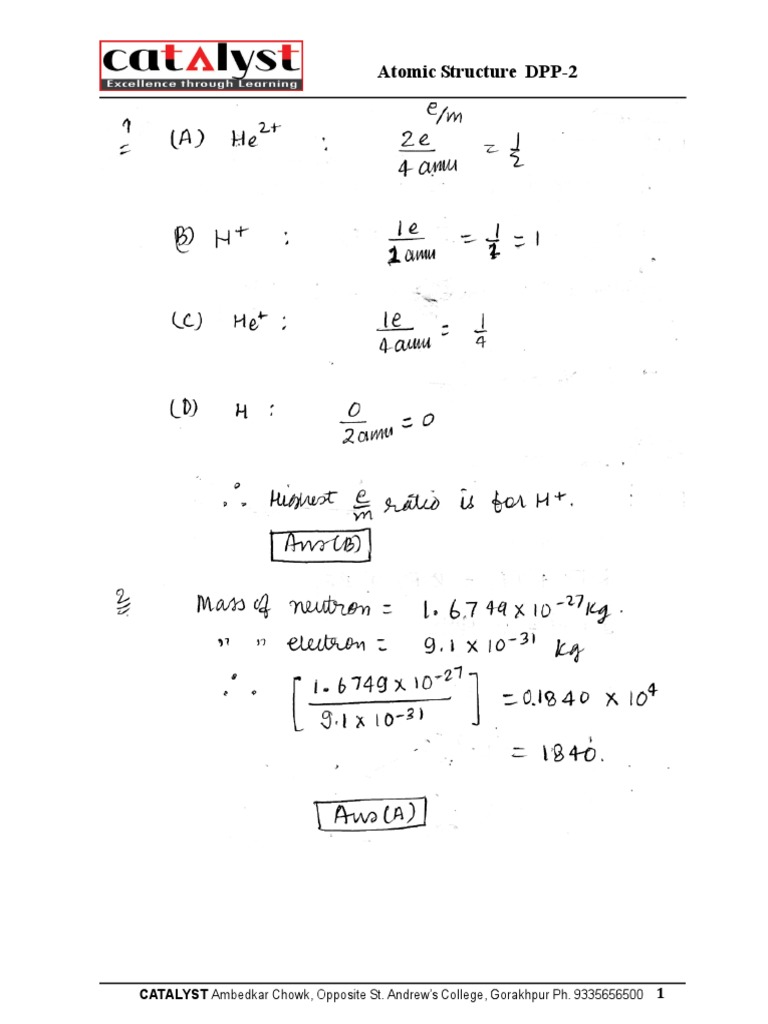 catalyst
Excellence through Learning
Atomic Structure DPP-2
e/m
1 (A) He²⁺ : 2e / 4 amu = 1/2
(B) H⁺ : 1e / 1 amu = 1/1 = 1
(C) He⁺ : 1e / 4 amu = 1/4
(D) H : 0 / 2 amu = 0
∴ Highest e/m ratio is for H⁺.
Ans(B)
2 Mass of neutron = 1.6749 × 10⁻²⁷ kg.
" " electron = 9.1 × 10⁻³¹ kg
∴ [1.6749 × 10⁻²⁷ / 9.1 × 10⁻³¹] = 0.1840 × 10⁴
= 1840.
Ans(A)
CATALYST Ambedkar Chowk, Opposite St. Andrew's College, Gorakhpur Ph. 9335656500 1